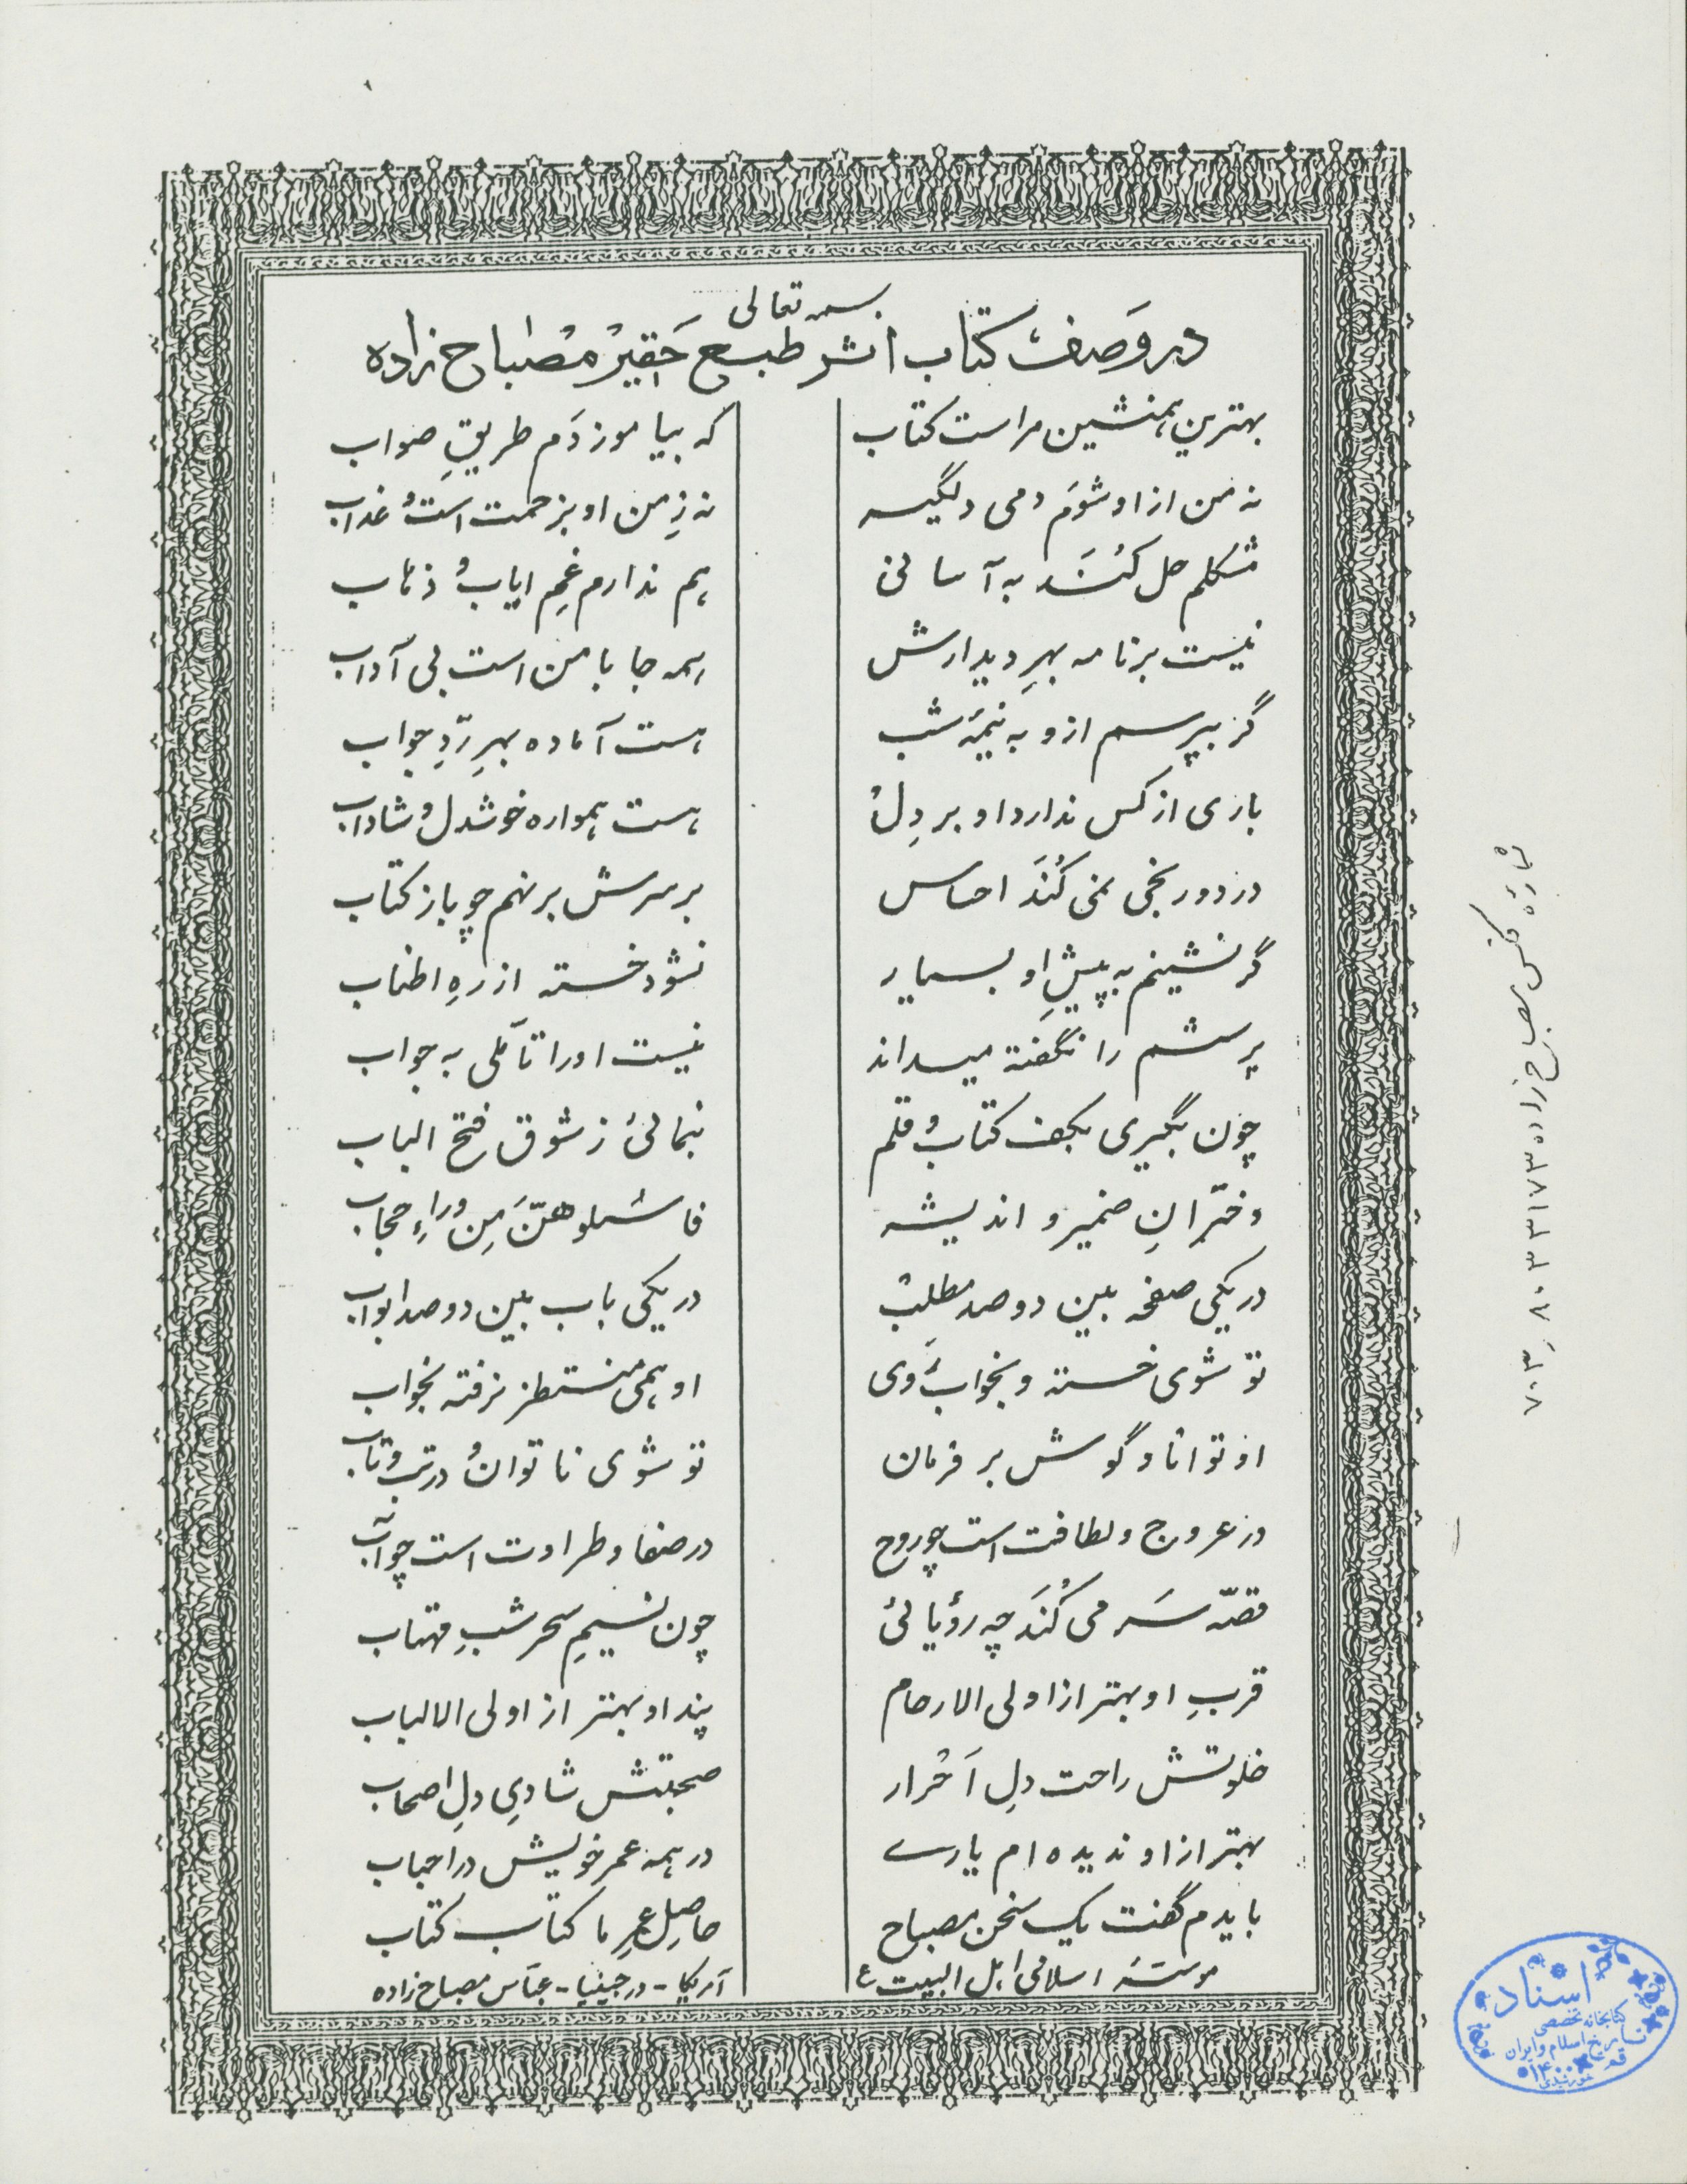 بسمه تعالی
در وَصف کتاب اثر طبع حَقیرْ مصْباح زاده
بهترین همنشین مراست کتاب
که بیاموزدَم طریقِ صواب
نه من از او شوَم دمی دلگیر
نه زِمن او بزحمت است و عذاب
مشکلم حل کُنَد به آسانی
هم ندارم غمِ ایاب و ذهاب
نیست برنامه بهرِ دیدارش
همه جا با من است بی آداب
گر بپرسم ازو به نیمهٔ شب
هست آماده بهرِ ردِّ جواب
باری از کس ندارد او بر دِلْ
هست همواره خوشدل و شاداب
درد و رنجی نمی کُنَد احساس
بر سرش بر نهم چو باز کتاب
گر نشینم به پیشِ او بسیار
نشود خسته از رهِ اطناب
پرسشم را نگفته میداند
نیست او را تأملی به جواب
چون بگیری بکف کتاب و قلم
بنمائی ز شوق فتح الباب
دخترانِ ضمیر و اندیشه
فاسئلوهنّ مِن وراءِ حجاب
در یکی صفحه بین دو صد مطلبْ
در یکی باب بین دو صد ابواب
تو شوی خسته و بخواب شوی
او همی منتظر نرفته بخواب
او توانا و گوش بر فرمان
تو شوی ناتوان و در تب و تاب
در عروج و لطافت است چو روح
در صفا و طراوت است چو آب
قصّه سَر می کُنَد چه رؤیائی
چون نسیمِ سحر شبِ مهتاب
قربِ او بهتر از اولی الارحام
پند او بهتر از اولی الالباب
خلوتش راحت دلِ اَحْرار
صحبتش شادیِ دلِ اصحاب
بهتر از او ندیده ام یارے
در همه عمر خویش در احباب
بایدم گفت یک سخن مصباح
حاصِلِ عمرِ ما کتاب کتاب
موسسه اسلامی اهل البیت ع
آمریکا - ورجینیا - عبّاس مصباح زاده
شماره فکس مصباح زاده ۷۰۳٫۸۰۳۳۱۷۳
اسناد
کتابخانه تخصصی
تاریخ اسلام و ایران
قم